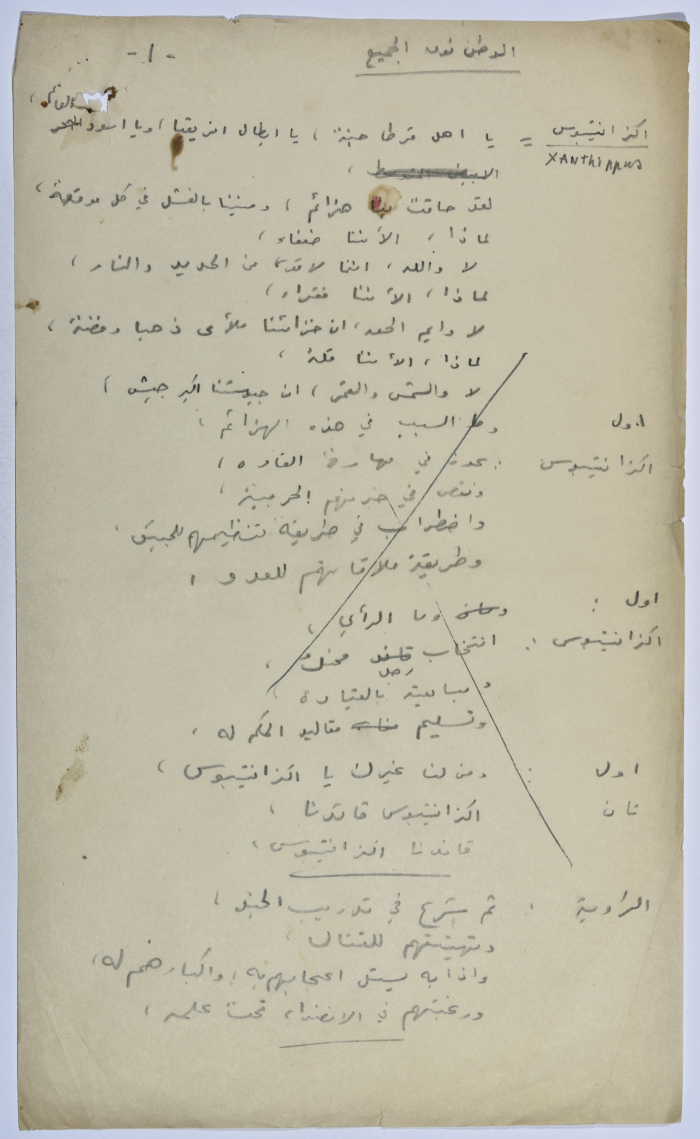 - ١ -
الوطن فوق الجميع
اكزانتيبوس = يا اهل قرطاجنة ، يا ابطال افريقيا ، ويا اسود البحر
XANTHIPPUS
الابيض المتوسط ،
لقد حاقت بنا هزائم ، ومنينا بالفشل في كل موقعة ،
لماذا ، الأننا ضعفاء ،
لا والله ، اننا لاقوى من الحديد والنار ،
لماذا ، الأننا فقراء ،
لا وايم الحق ، ان خزائننا ملأى ذهبا وفضة ،
لماذا ، الأننا قلة ،
لا والشمس والقمر ، ان جيوشنا اكبر جيش ،
اول وما السبب في هذه الهزائم ،
اكزانتيبوس : في مهارة القادة ،
ونقص في الحربية ،
واضطراب في طريقة تنظيمهم للجيش ،
وطريقة ملاقاتهم للعدو ،
اول : وما الرأي ،
اكزانتيبوس : انتخاب قائد محنك ،
رجل
ومبايعته بالقيادة ،
وتسليم مقاليد الحكم له ،
اول : ومن لنا غيرك يا اكزانتيبوس ،
ثان اكزانتيبوس قائدنا ،
قائدنا اكزانتيبوس ،
الراوية : ثم شرع في تدريب الجند ،
وتهيئتهم للقتال ،
واذا به يستل اعجابهم به ، واكبارهم له ،
ورغبتهم في الانضواء تحت علمه ،